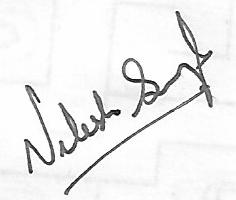 Nilesh Singh